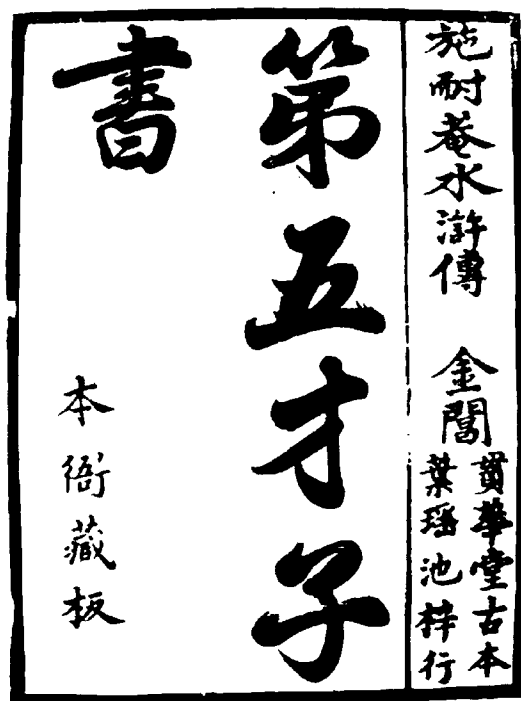 施耐菴水滸傳　金閶
貫華堂古本
葉瑶池梓行
第五才子
書
本衙藏板